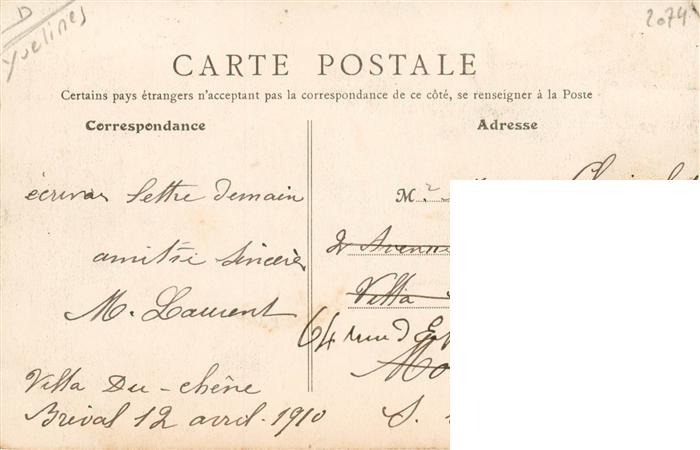 D
Yvelines
2074
CARTE POSTALE
Certains pays étrangers n'acceptant pas la correspondance de ce côté, se renseigner à la Poste
Correspondance
écrirai lettre demain
amitié sincère
M. Laurent
Villa Du-chêne
Bréval 12 avril 1910
Adresse
M
Avenue
Villa
64 rue d
S.